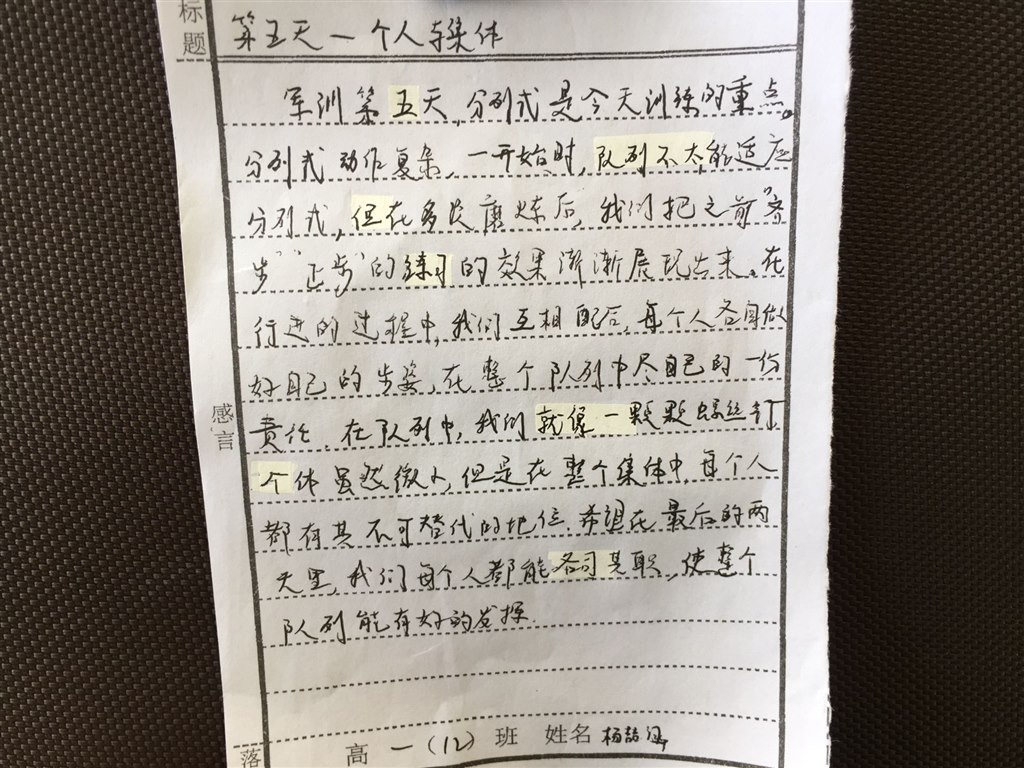 标题 第五天—个人与集体
军训第五天,分列式是今天训练的重点。
分列式动作复杂,一开始时,队列不太能适应
分列式,但在多次磨炼后,我们把之前“齐
步”“正步”的练习的效果渐渐展现出来。在
行进的过程中,我们互相配合,每个人各自做
好自己的步姿,在整个队列中尽自己的一份
责任。在队列中,我们就像一颗颗螺丝钉,
感言
个体虽然微小,但是在整个集体中,每个人
都有其不可替代的地位。希望在最后的两
天里,我们每个人都能各司其职,使整个
队列能有好的发挥.
落 高一(12)班 姓名 杨喆